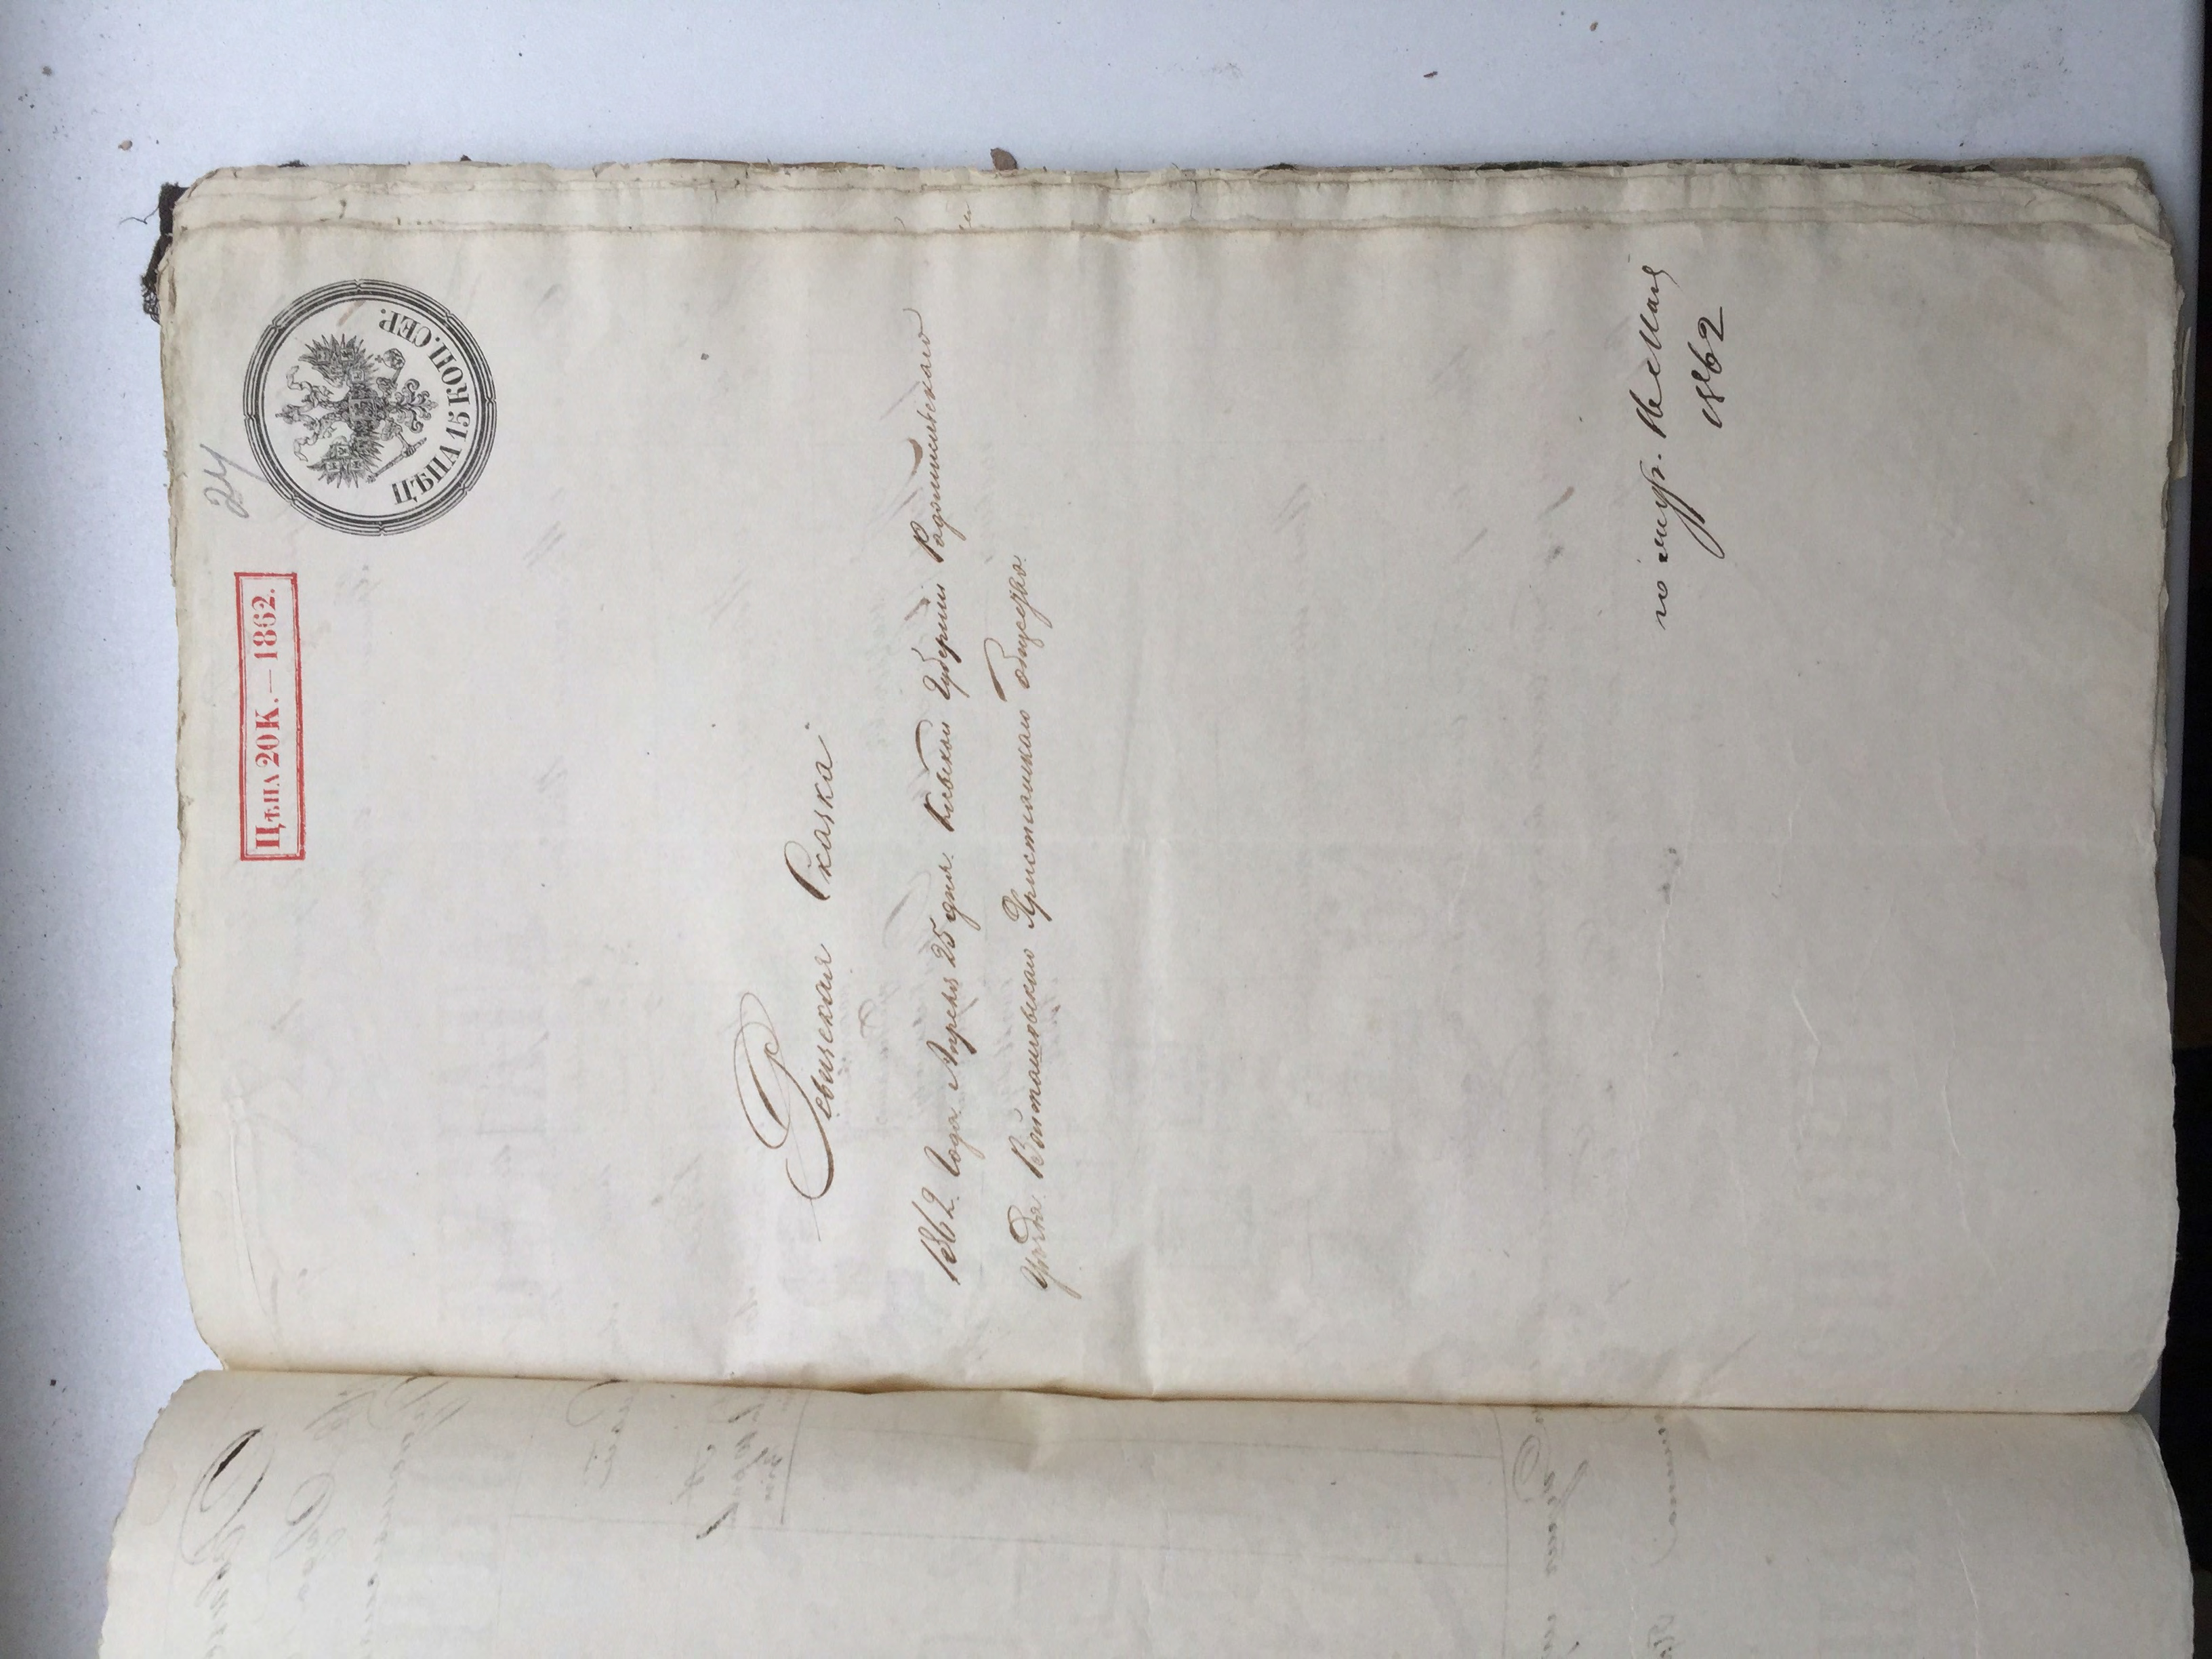 24
ЦѢНА 20 К. — 1862.
ЦѢНА 15 КОП. СЕР.
Ревизская Сказка
1862 Года Апреля 25 дня. Кіевской Губерніи Радомысльскаго
уѣзда Войташовскаго Христіанскаго общества.
Мая
1862